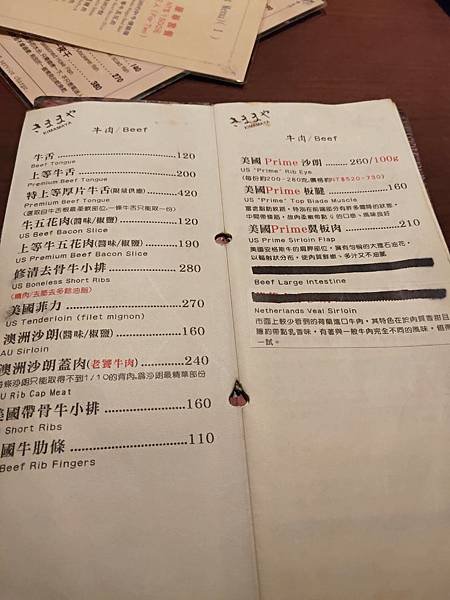 きままや
KIMAMAYA
牛肉/Beef
牛舌 120
Beef Tongue
上等牛舌 200
Premium Beef Tongue
特上等厚片牛舌(限量供應) 420
Premium Beef Tongue
(選取自牛舌根最柔軟部位,一條牛舌只能取一份)
牛五花肉(醬味/椒鹽) 120
US Beef Bacon Slice
上等牛五花肉(醬味/椒鹽) 190
US Premium Beef Bacon Slice
修清去骨牛小排 280
US Boneless Short Ribs
(精肉/去筋去多餘油脂)
美國菲力 270
US Tenderloin (filet mignon)
澳洲沙朗(醬味/椒鹽) 160
AU Sirloin
澳洲沙朗蓋肉(老饕牛肉) 240
條沙朗只能取得不到1/10的背肉,為沙朗最精華部份
U Rib Cap Meat
國帶骨牛小排 160
Short Ribs
國牛肋條 110
Beef Rib Fingers
きままや
KIMAMAYA
牛肉/Beef
美國 Prime 沙朗 260/100g
US "Prime" Rib Eye
(每份約200-280克,價格約NT$520-730)
美國Prime 板腱 160
US "Prime" Top Blade Muscle
美國Prime翼板肉 210
US Prime Sirloin Flap
Beef Large Intestine
Netherlands Veal Sirloin
市面上較少看倒的荷蘭進口牛肉,其特色在於肉質香甜目
一試。